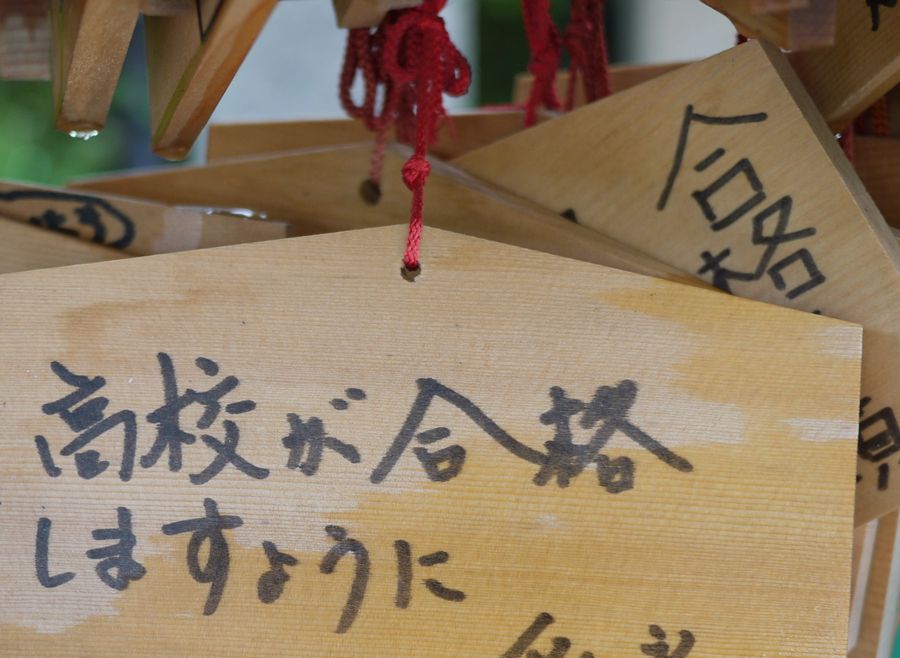 高校が合格
しますように
合格